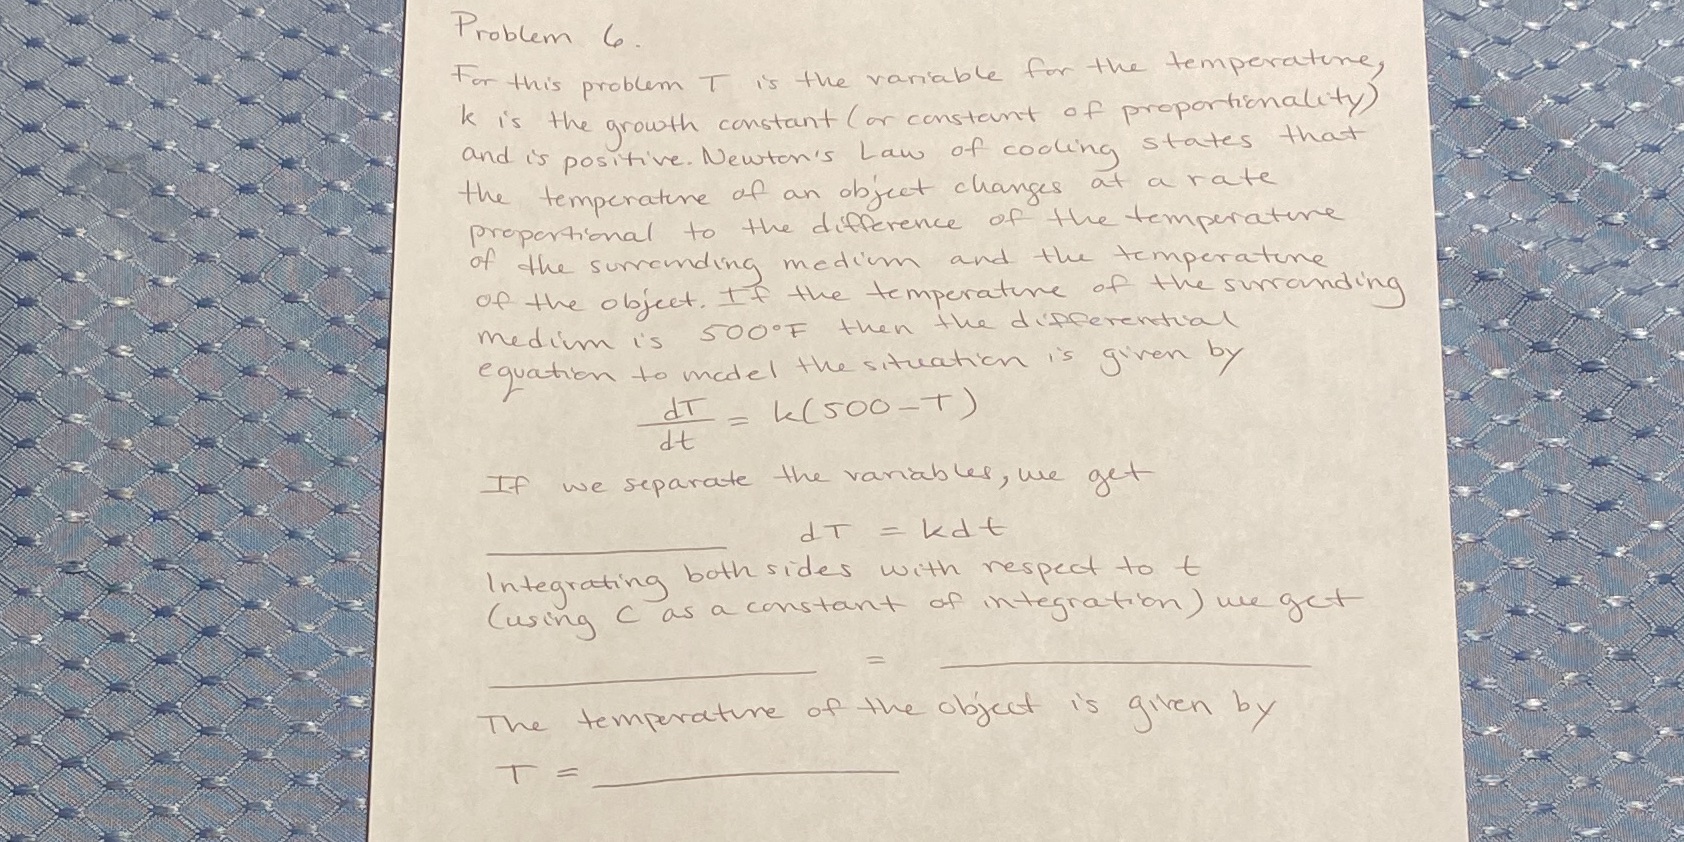 Problem 6.
For this problem T is the variable for the temperature,
k is the growth constant (or constant of proportionality)
and is positive. Newton's Law of cooling states that
the temperature of an object changes at a rate
proportional to the difference of the temperature
of the surrounding medium and the temperature
of the object. If the temperature of the surrounding
medium is 500°F then the differential
equation to model the situation is given by
dT/dt = k(500-T)
If we separate the variables, we get
______ dT = kdt
Integrating both sides with respect to t
(using C as a constant of integration) we get
______ = ______
The temperature of the object is given by
T = ______